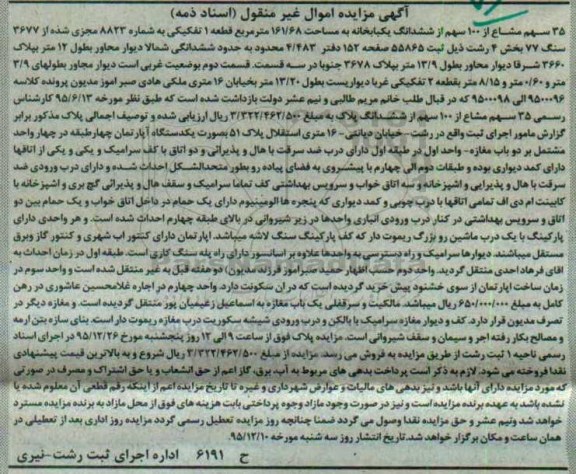 آگهی مزایده اموال غیر منقول (اسناد ذمه)
۳۵ سهم مشاع از ۱۰۰ سهم از ششدانگ یکبابخانه به مساحت ۱۶۱/۶۸ مترمربع قطعه ۱ تفکیکی به شماره ۸۸۲۳ مجزی شده از ۳۶۷۷
سنگ ۷۷ بخش ۴ رشت ذیل ثبت ۵۵۸۶۵ صفحه ۱۵۲ دفتر ۴/۴۸۳ محدود به حدود ششدانگی شمالا دیوار محاور بطول ۱۲ متر بپلاک
۳۶۶۰ شرقا دیوار محاور بطول ۱۳/۹ متر بپلاک ۳۶۷۸ جنوبا در سه قسمت. قسمت دوم بوضعیت غربی است دیوار مجاور بطولهای ۳/۹
متر و ۰/۶۰ متر و ۸/۱۵ متر بقطعه ۲ تفکیکی غربا دیواریست بطول ۱۳/۲۰ متر بخیابان ۱۶ متری ملکی هادی صبر اموز مدیون پرونده کلاسه
۹۵۰۰۰۹۶ الی ۹۵۰۰۰۹۸ که در قبال طلب خانم مریم طالبی و نیم عشر دولت بازداشت شده است که طبق نظر مورخه ۹۵/۶/۱۳ کارشناس
رسمی ۳۵ سهم مشاع از ۱۰۰ سهم از ششدانگ پلاک به مبلغ ۳/۳۲۲/۴۶۲/۵۰۰ ریال ارزیابی شده و توصیف اجمالی پلاک مذکور برابر
گزارش مامور اجرای ثبت واقع در رشت- خیابان دیانتی- ۱۶ متری استقلال پلاک ۵۱ بصورت یکدستگاه آپارتمان چهارطبقه در چهار واحد
مشتمل بر دو باب مغازه- واحد اول در طبقه اول دارای درب ضد سرقت با هال و پذیرائی و دو اتاق با کف سرامیک و یکی و یکی از اتاقها
دارای کمد دیواری بوده و طبقات دوم الی چهارم با پیشروی به فضای پیاده رو بطور متحدالشکل احداث شده و دارای درب ورودی ضد
سرقت با هال و پذیرایی و اشپزخانه و سه اتاق خواب و سرویس بهداشتی کف تماما سرامیک و سقف هال و پذیرائی گچ بری و اشپزخانه با
کابینت ام دی اف تمامی اتاقها با درب چوبی و کمد دیواری که پنجره ها الومینیوم دارای یک حمام در داخل اتاق خواب و یک حمام بین دو
اتاق و سرویس بهداشتی در کنار درب ورودی انباری واحدها در زیر شیروانی در بالای طبقه چهارم احداث شده است. و هر واحدی دارای
پارکینگ با یک درب ماشین رو بزرگ ریموت دار که کف پارکینگ سنگ لاشه میباشد. اپارتمان دارای کنتور اب شهری و کنتور گاز وبرق
مستقل میباشند. دیوارها سرامیک و راه دسترسی به واحدها علاوه بر اسانسور دارای راه پله سنگ کاری است. طبقه اول در زمان احداث به
آقای فرهاد احدی منتقل گردید. واحد دوم حسب اظهار حمید صبراموز فرزند مدیون) دو هفته قبل به غیر منتقل شده است و واحد سوم در
زمان ساخت اپارتمان از سوی خشنود پیش خرید گردیده است که در ان سکونت دارد. واحد چهارم در اجاره غلامحسین عاشوری در رهن
کامل به مبلغ ۶۵۰/۰۰۰/۰۰۰ ریال میباشد. مالکیت و سرقفلی یک باب مغازه به اسماعیل زغیمیان پور منتقل گردیده است. و مغازه دیگر در
تصرف مدیون قرار دارد. کف و دیوار مغازه سرامیک با بالکن و درب ورودی شیشه سکوریت درب مغازه ریموت دار است. بنای سازه بتن ارمه
و مصالح بکار رفته اجر و سیمان و سقف شیروانی است. مزایده پلاک فوق از ساعت ۹ الی ۱۲ روز پنجشنبه مورخ ۹۵/۱۲/۲۶ در اجرای اسناد
رسمی ناحیه ۱ ثبت رشت از طریق مزایده به فروش می رسد. مزایده از مبلغ ۳/۳۲۲/۴۶۲/۵۰۰ ریال شروع و به بالاترین قیمت پیشنهادی
نقدا فروخته می شود. لازم به ذکر است پرداخت بدهی های مربوط به آب، برق، گاز اعم از حق انشعاب و یا حق اشتراک و مصرف در صورتی
که مورد مزایده دارای آنها باشد و نیز بدهی های مالیات و عوارض شهرداری و غیره تا تاریخ مزایده اعم از اینکه رقم قطعی آن معلوم شده یا
نشده باشد به عهده برنده مزایده است و نیز در صورت وجود مازاد وجوه پرداختی بابت هزینه های فوق از محل مازاد به برنده مزایده مسترد
خواهد شد ونیم عشر و حق مزایده نقدا وصول می گردد ضمنا چنانچه روز مزایده تعطیل رسمی گردد مزایده روز اداری بعد از تعطیلی در
همان ساعت و مکان برگزار خواهد شد. تاریخ انتشار روز سه شنبه مورخه ۹۵/۱۲/۱۰
ح ۶۱۹۱ اداره اجرای ثبت رشت-نیری